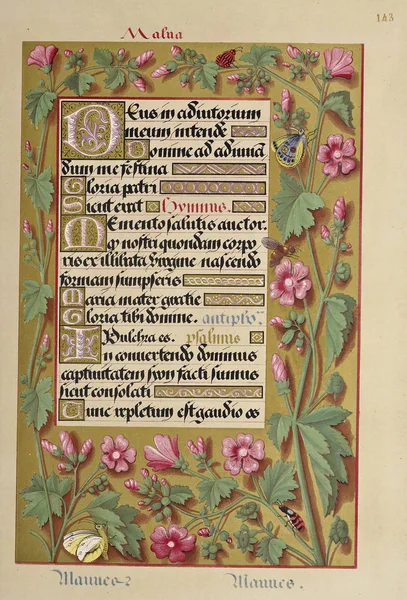 143
Malua
Deus in adiutorium
meum intende
Domine ad adiuuā
dum me festina
Gloria patri
Sicut erat Hymnus.
Memento salutis auctor.
q̄ nostri quondam corpo
ris ex illibata Virgine nascendo
formam sumpseris
Maria mater gratie
Gloria tibi domine. antipho
Pulchra es. psalmus
In conuertendo dominus
captiuitatem syon facti sumus
sicut consolati
Tunc repletum est gaudio os
Mauues
Mauues.